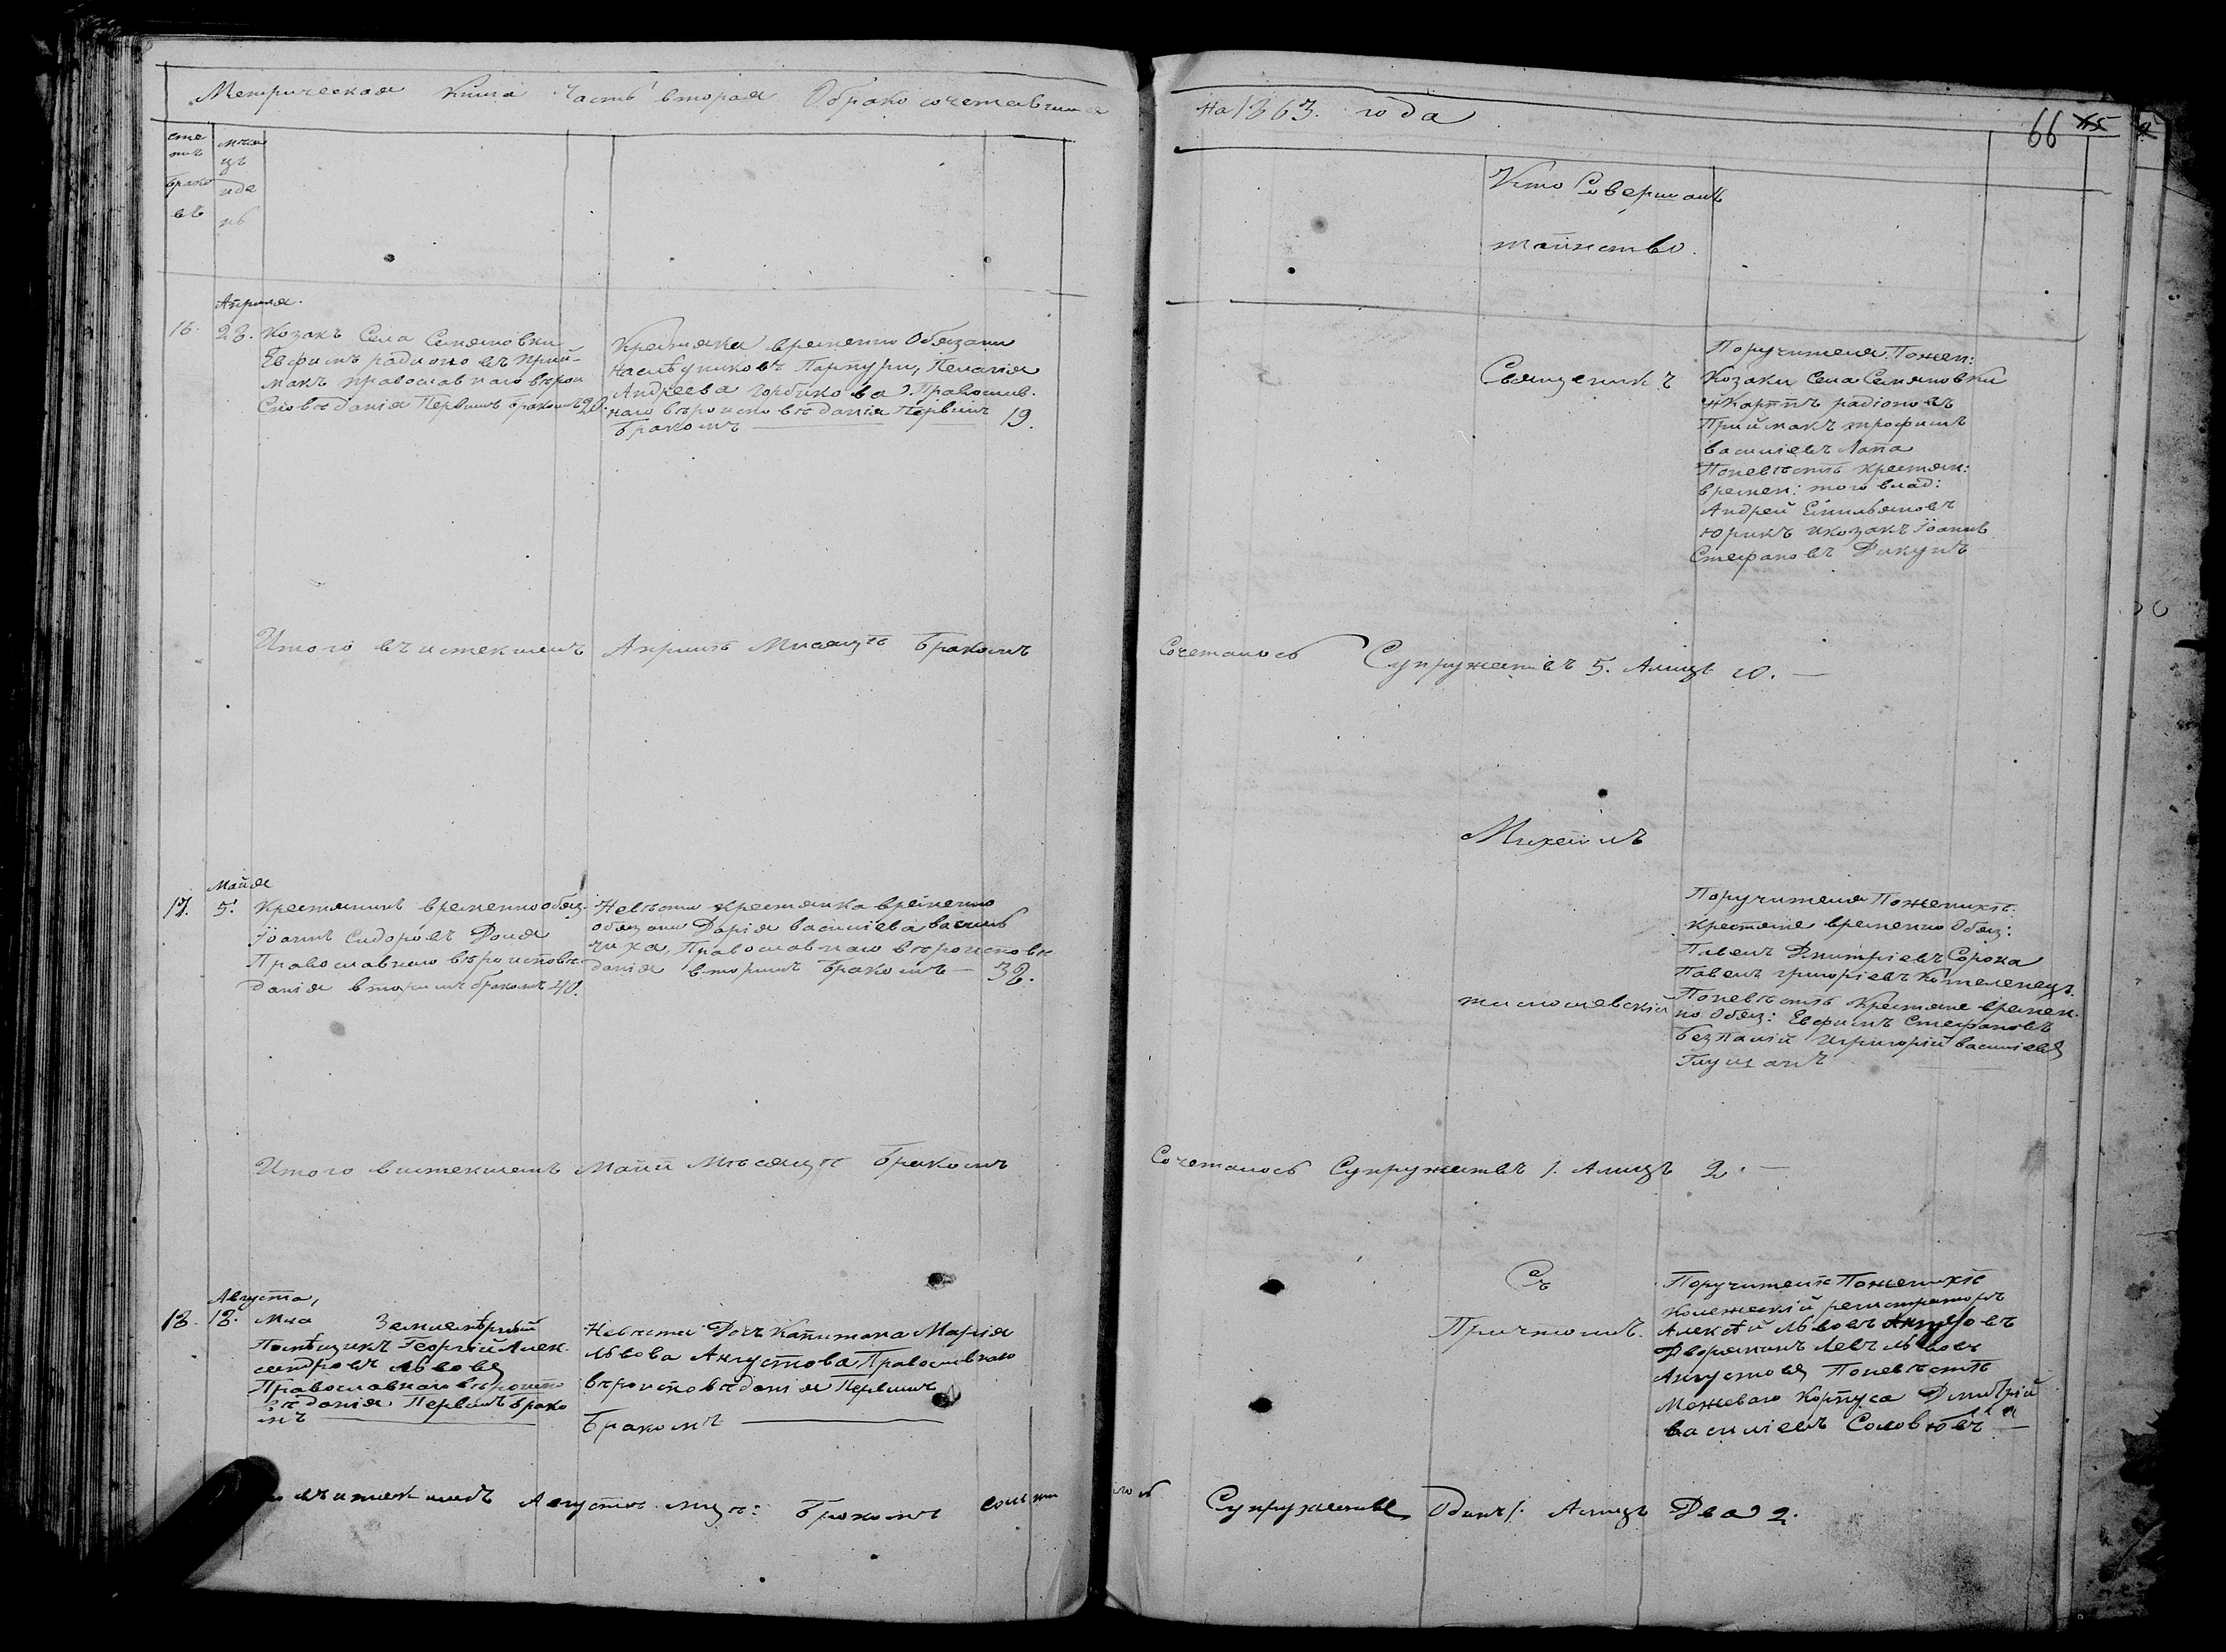 Метрическая Книга Часть вторая О бракосочетавшихся
на 1863. года
66
Кто Совершалъ
таинство.
Апреля.
16. 23. Козакъ Села Семяновки
Евфимъ радионовъ Прий-
макъ православнаго вѣрои
сповѣданія Первимъ бракомъ 20.
Крестянка временно Обязани
Наслѣдниковъ Парпури, Пелагія
Андреева православ.
наго вѣроисповѣданія Первимъ
бракомъ 19.
Священикъ
Поручителя Пожен:
Козаки Села Семяновки
радіоновъ
Приймакъ трофимъ
василіевъ Лапа
Поневѣстѣ крестян:
времен: того влад:
Андрей Емильяновъ
Юрикъ икозакъ Іоаннъ
Стефановъ Дикунъ
Итого въ истекшемъ Априлѣ Мисяцѣ бракомъ
Сочеталось Супружествъ 5. Алицъ 10.
Михаилъ
Майя
17. 5. Крестянинъ временнообяз.
Іоаннъ Сидоровъ Доля
Православнаго вѣроисповѣ
данія вторимъ бракомъ 40.
Невѣста крестянка временно
обязани Дарія василіева василь
чиха, Православнаго вѣроисповѣ
данія вторимъ бракомъ — 32.
Поручителя Поженихѣ.
крестяне временно Обяз:
Павелъ Дмитріевъ Сорока
Павелъ григоріевъ Котеленецъ.
Поневѣстѣ Крестяне времен-
но Обяз: Евфимъ Стефановъ
безпалій игригорій василіевъ
Глущакъ
Итого вистекшемъ Маии Мѣсяцѣ бракомъ
Сочеталось Супружествъ 1. Алицъ 2.
Августа,
18. 18. Землемѣрный
Помѣщикъ Георгій Алек-
сандровъ Львовъ
Православнаго вѣроиспо
вѣданія Первимъ брако
мъ
Невѣста Дочь Капитана Марія
Львова Августова Православнаго
вѣроисповѣданія Первимъ
Бракомъ
Съ
Причтомъ.
Поручителѣ Поженихѣ
Колежескій регистраторъ
Алексѣй Львовъ Августовъ
Дворянинъ Левъ Львовъ
Августовъ Поневѣстѣ
Межеваго Корпуса Дмитрій
василіевъ Соловьевъ
въ истекшемъ Августѣ мцѣ: Бракомъ
Супружество Одинъ 1. Алицъ Два 2.